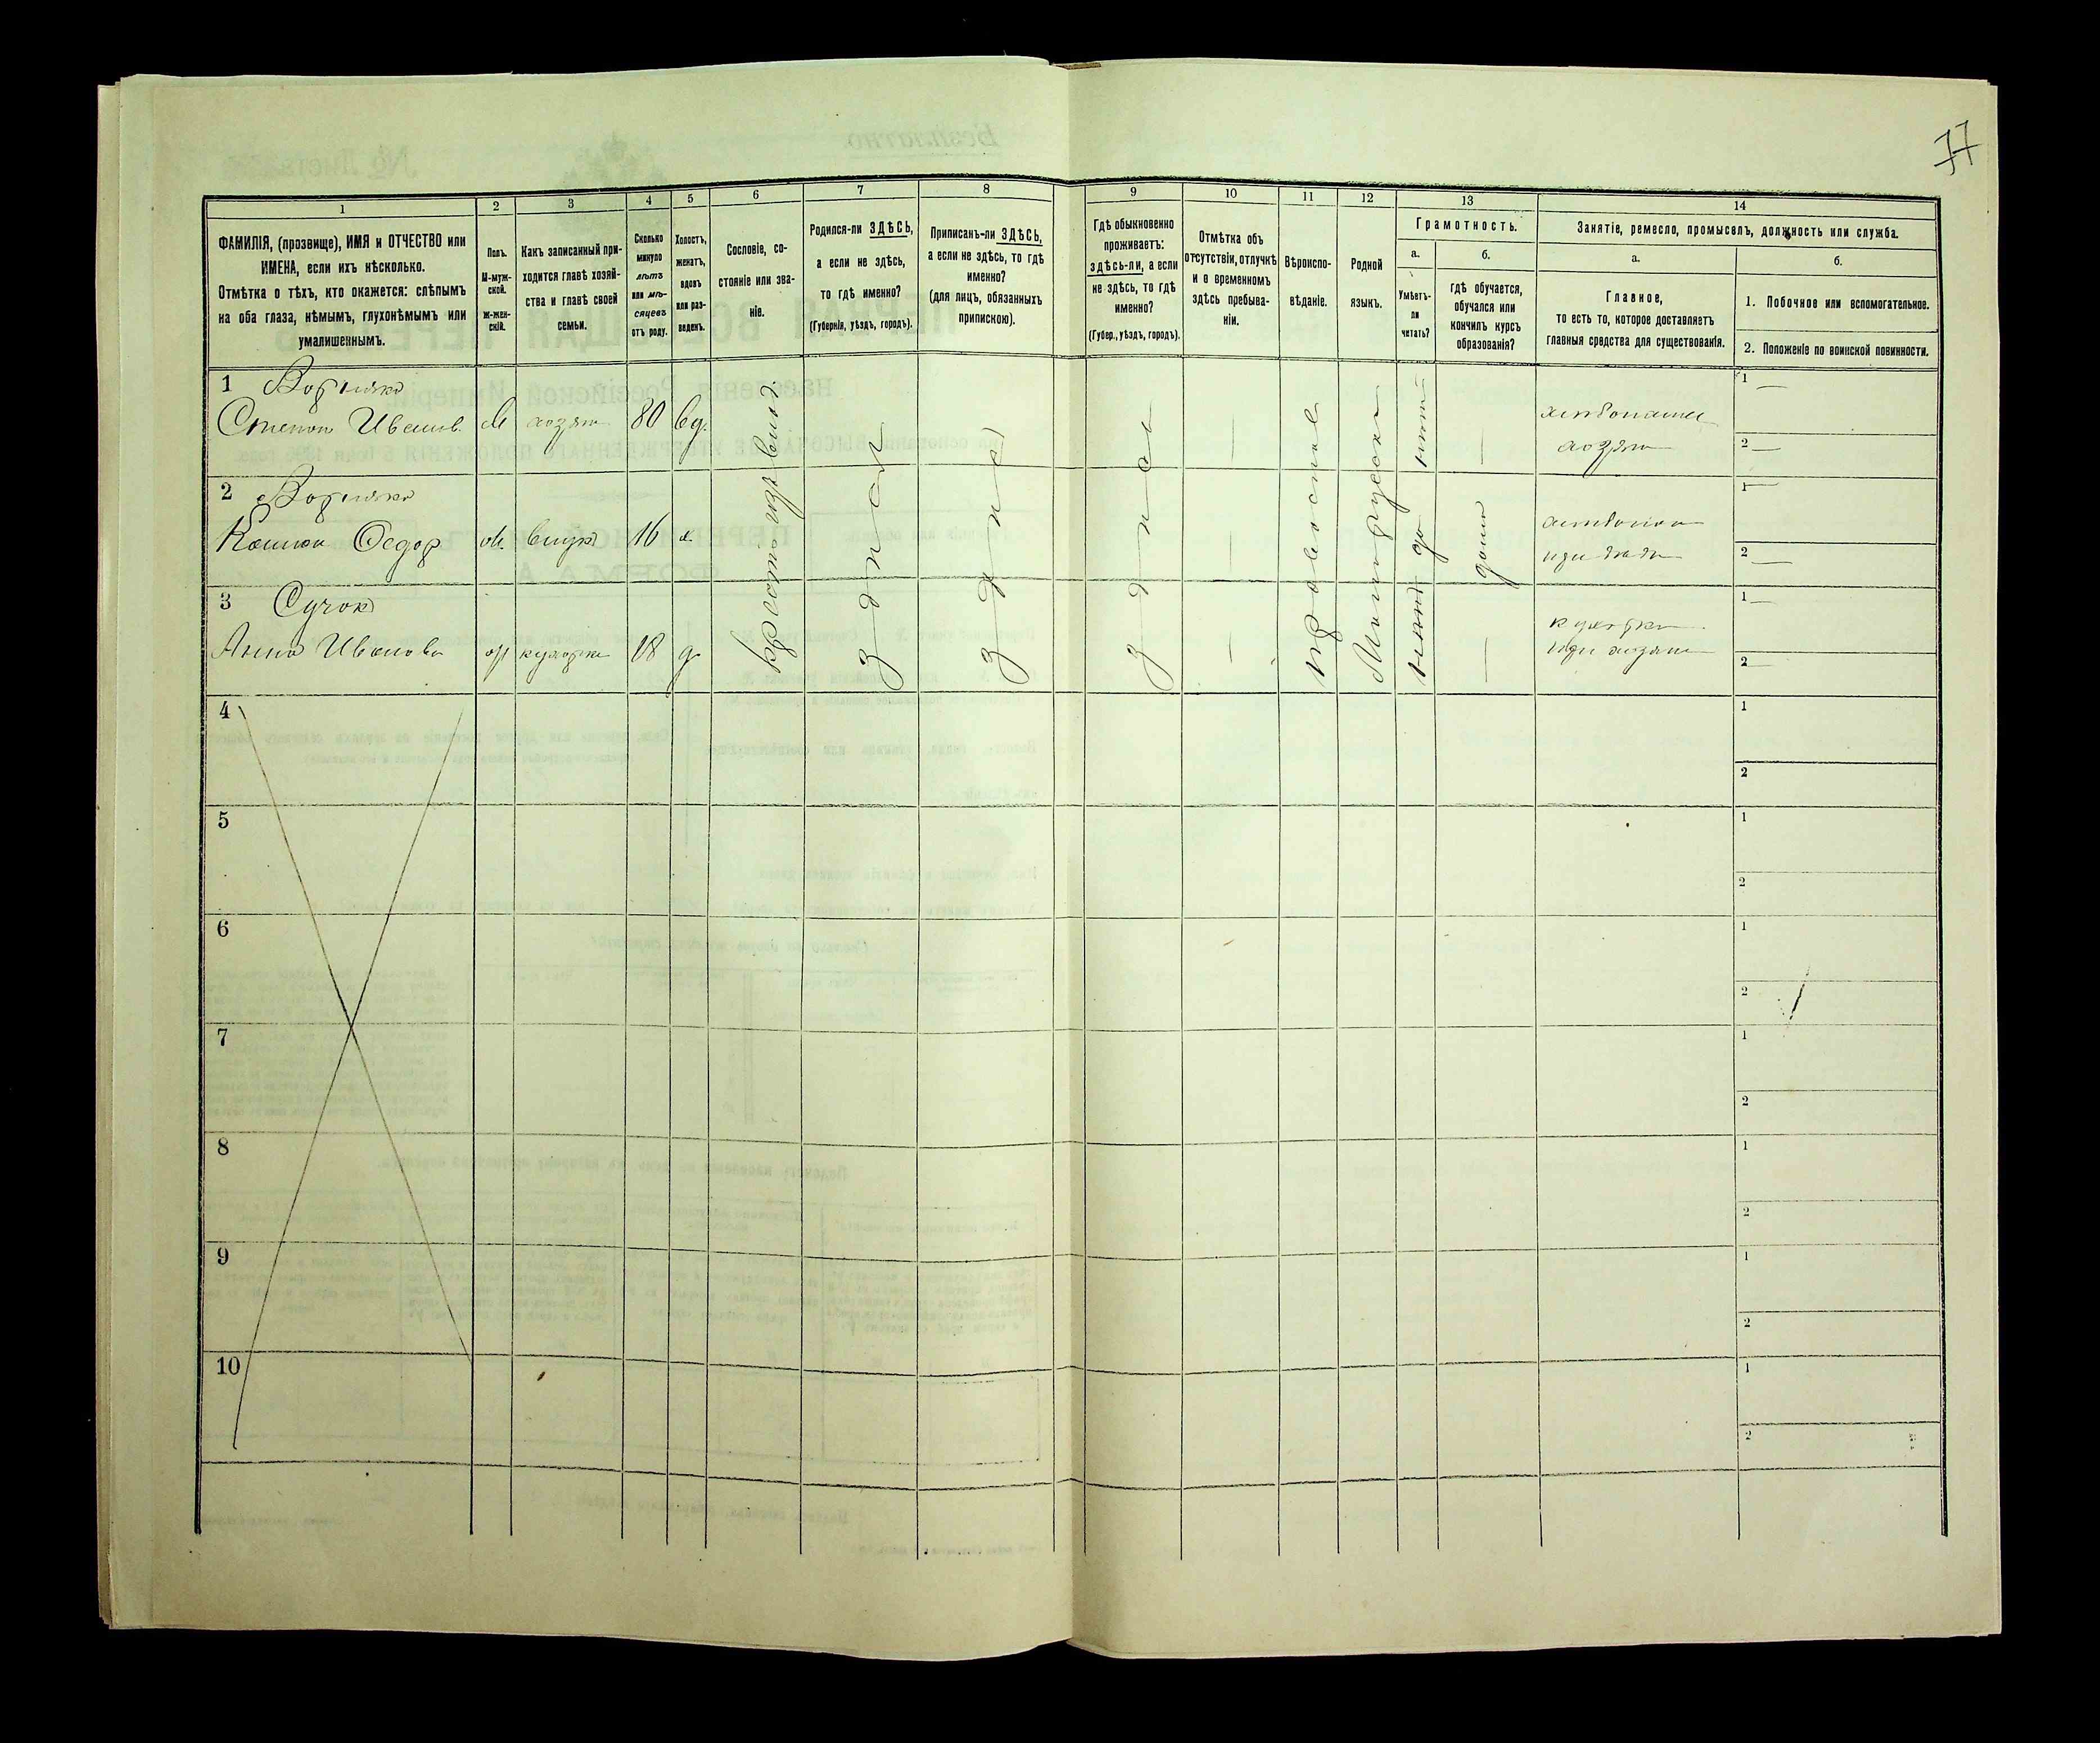 77
1
ФАМИЛІЯ, (прозвище), ИМЯ и ОТЧЕСТВО или
ИМЕНА, если ихъ нѣсколько.
Отмѣтка о тѣхъ, кто окажется: слѣпымъ
на оба глаза, нѣмымъ, глухонѣмымъ или
умалишеннымъ.
2
Полъ.
М-муж-
ской.
ж-жен-
скій.
3
Какъ записанный при-
ходится главѣ хозяй-
ства и главѣ своей
семьи.
4
Сколько
минуло
лѣтъ
или мѣ-
сяцевъ
отъ роду.
5
Холостъ,
женатъ,
вдовъ
или раз-
веденъ.
6
Сословіе, со-
стояніе или зва-
ніе.
7
Родился-ли ЗДѢСЬ,
а если не здѣсь,
то гдѣ именно?
(Губернія, уѣздъ, городъ).
8
Приписанъ-ли ЗДѢСЬ,
а если не здѣсь, то гдѣ
именно?
(для лицъ, обязанныхъ
припискою).
9
Гдѣ обыкновенно
проживаетъ:
здѣсь-ли, а если
не здѣсь, то гдѣ
именно?
(Губер., уѣздъ, городъ).
10
Отмѣтка объ
отсутствіи, отлучкѣ
и о временномъ
здѣсь пребыва-
ніи.
11
Вѣроиспо-
вѣданіе.
12
Родной
языкъ.
13
Грамотность.
а.
Умѣетъ-
ли
читать?
б.
гдѣ обучается,
обучался или
кончилъ курсъ
образованія?
14
Занятіе, ремесло, промыселъ, должность или служба.
а.
Главное,
то есть то, которое доставляетъ
главныя средства для существованія.
б.
1. Побочное или вспомогательное.
2. Положеніе по воинской повинности.
1
Степан Иванов. М хозяин 80 вд.
нет
хозяин
1 —
2 —
2
Федор м. внук 16 х
да
дома
1 —
2 —
3 Сучок
Анна Иванова ж кухарка 18 д
здесь
здесь
здесь
православное
Малорусский
нет
кухарка
при хозяине
1 —
2 —
4
1
2
5
1
2
6
1
2
7
1
2
8
1
2
9
1
2
10
1
2